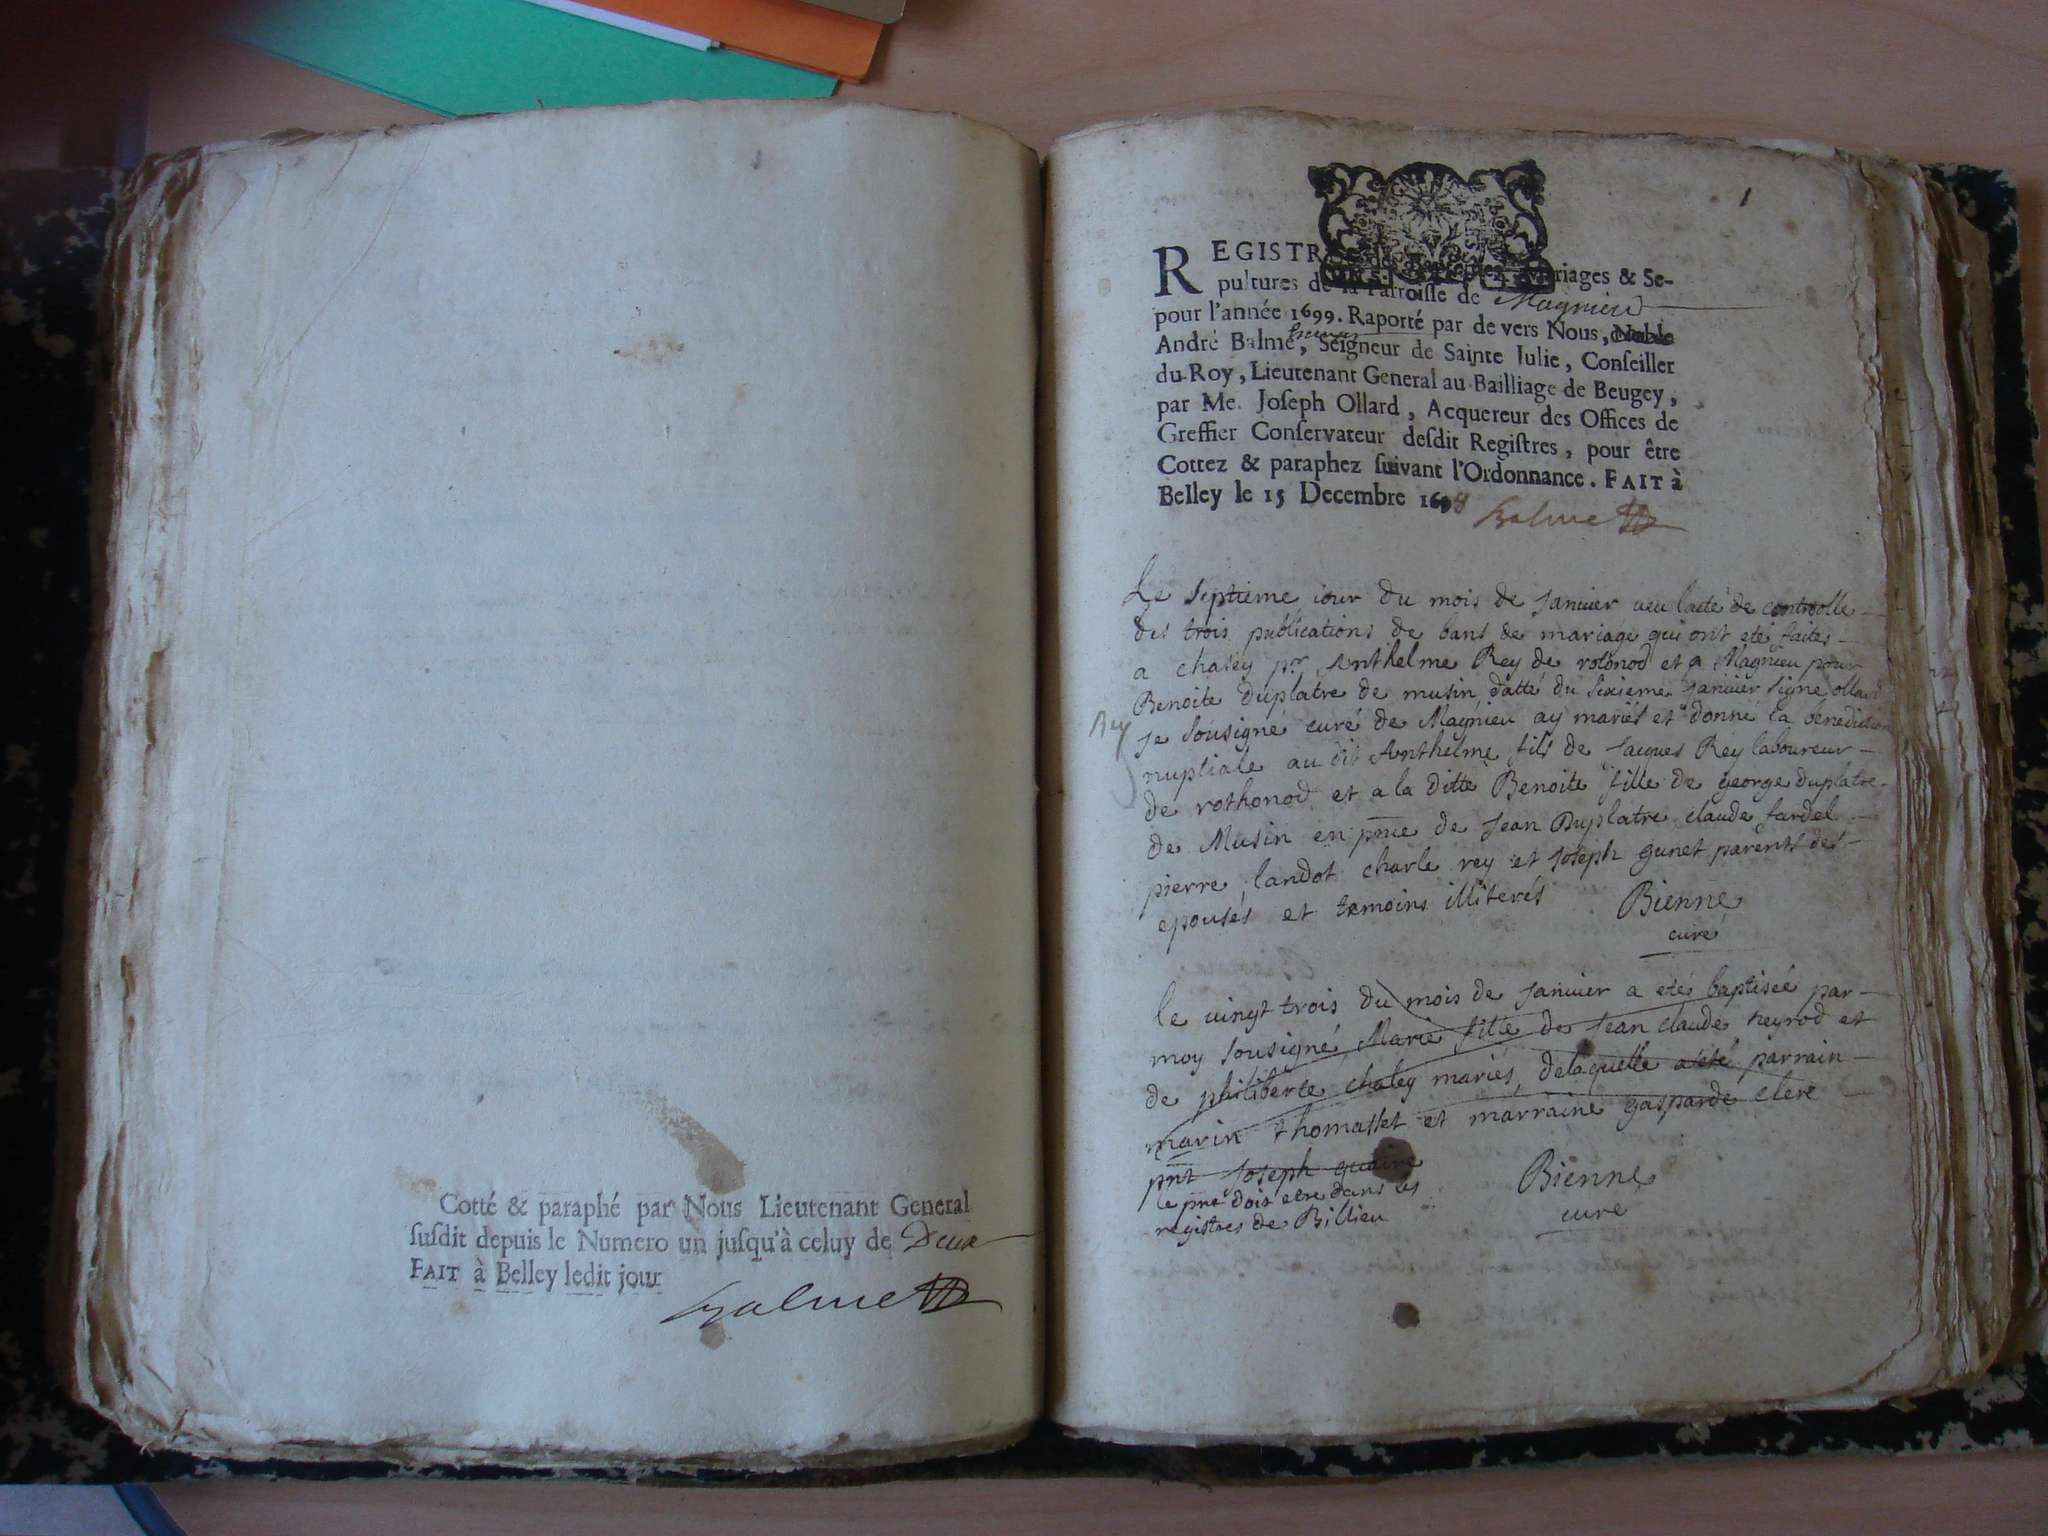 Cotté & paraphé par Nous Lieutenant General
ſuſdit depuis le Numero un juſqu'à celuy de Deux
FAIT à Belley ledit jour
Balme
1
REGISTRE des Baptêmes, Mariages & Se-
pultures de la Parroiſſe de Magnieu
pour l'année 1699. Raporté par de vers Nous, Noble
André Balme, Seigneur de Sainte Julie, Conſeiller
du Roy, Lieutenant General au Bailliage de Beugey,
par Me. Joſeph Ollard, Acquereur des Offices de
Greffier Conſervateur deſdit Regiſtres, pour être
Cottez & paraphez ſuivant l'Ordonnance. FAIT à
Belley le 15 Decembre 1698
Balme
Le septieme iour du mois de Janvier veu lacte de controolle
des trois publications de bans de mariage qui ont eté faites
a chasey pr Anthelme Rey de rotonod et a Magnieu pour
Benoite Duplatre de musin datté du Sixieme Janvier signe ollard
Rey
je sousigné curé de Magnieu ay mariés et donné la benediction
nuptiale au dit Anthelme fils de Jacques Rey laboureur
de rothonod et a la ditte Benoite fille de george duplatre
de Musin en pnce de Jean Duplatre claude fardel
pierre landot charle rey et Joseph gunet parents des
epousés et temoins illiterés Bienne
curé
le vingt trois du mois de Janvier a etés baptisée par
moy sousigné Marie fille de Jean claude heyrod et
de philiberte chaley mariés, delaquelle a eté parrain
marin thomasset et marraine gasparde clere
pnt Joseph
le pnt dois etre dans les
registres de Billieu
Bienne
curé